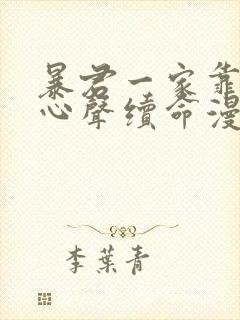 暴君一家靠
心聲續命漫
李葉青